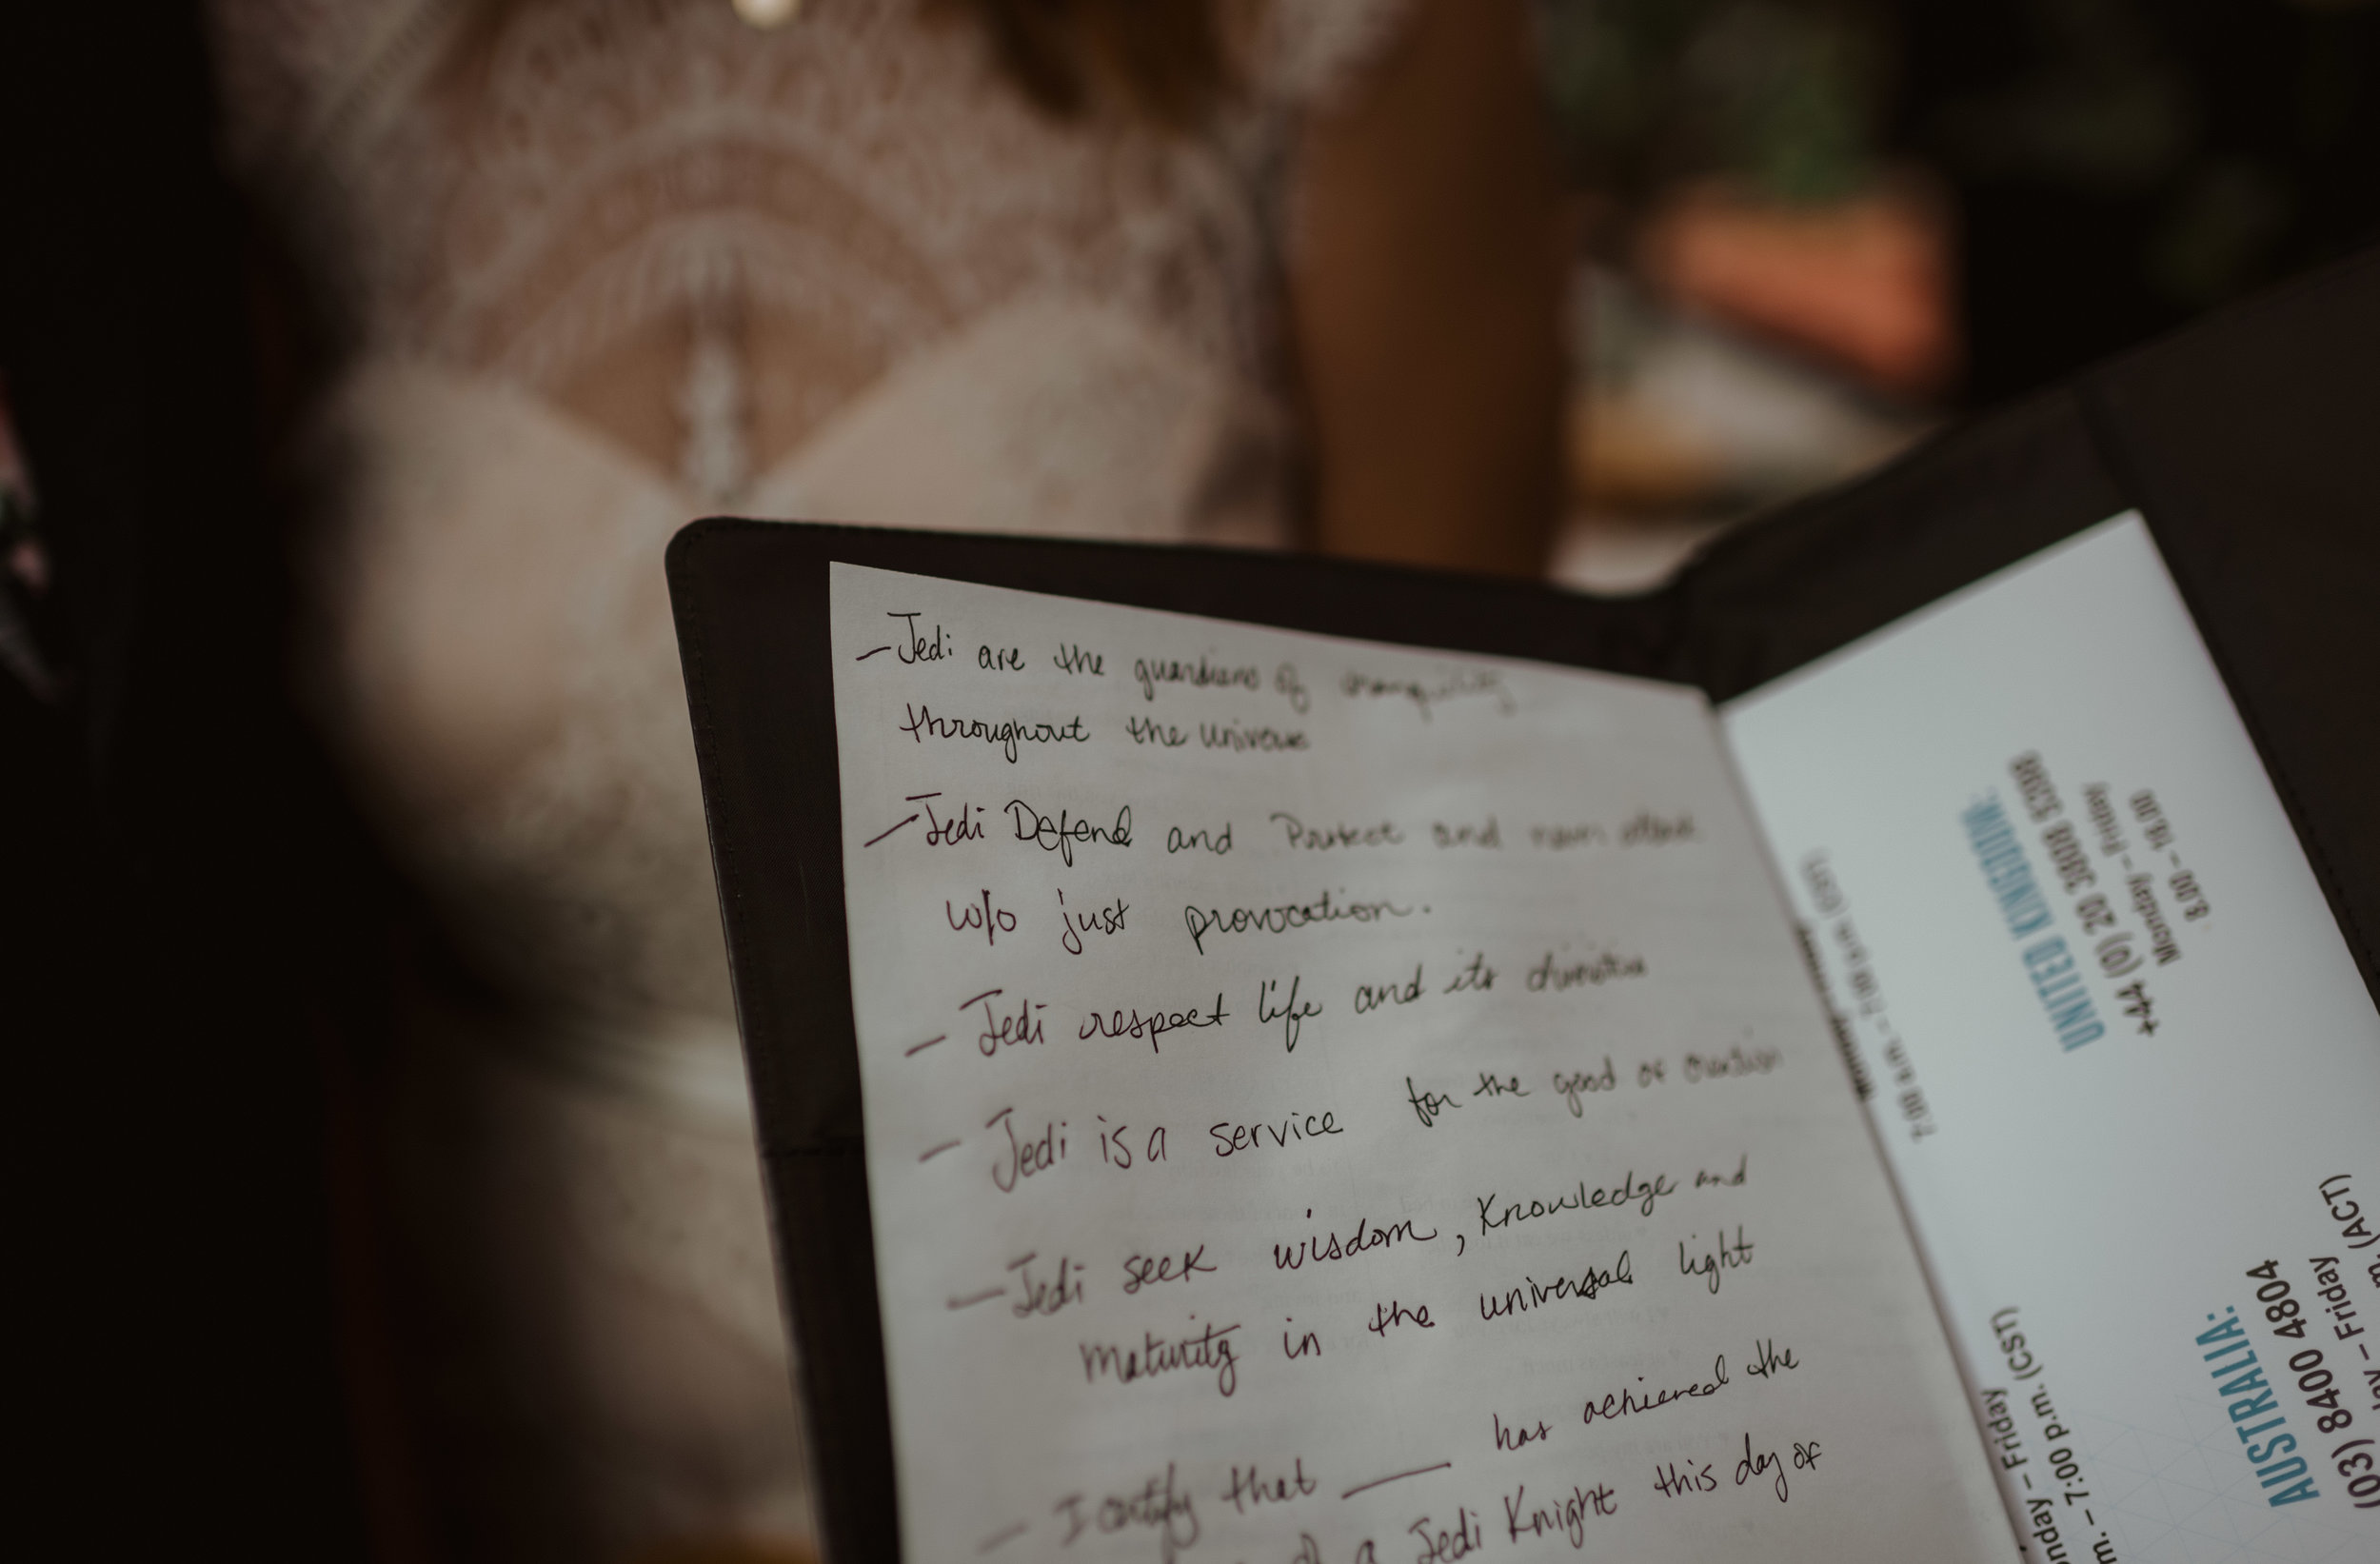 – Jedi are the guardians of tranquility
throughout the universe
– Jedi Defend and Protect and never attack
w/o just provocation.
– Jedi respect life and its
– Jedi is a service for the good of creation
– Jedi seek wisdom, Knowledge and
maturity in the universal light
– I certify that ____ has achieved the
a Jedi Knight this day of
UNITED KINGDOM:
+44 (0) 20 3808 5288
Monday – Friday
8.00 – 16.00
7:00 a.m. – 7:00 p.m. (CST)
– Friday
– 7:00 p.m. (CST)
AUSTRALIA:
(03) 8400 4804
– Friday
(ACT)